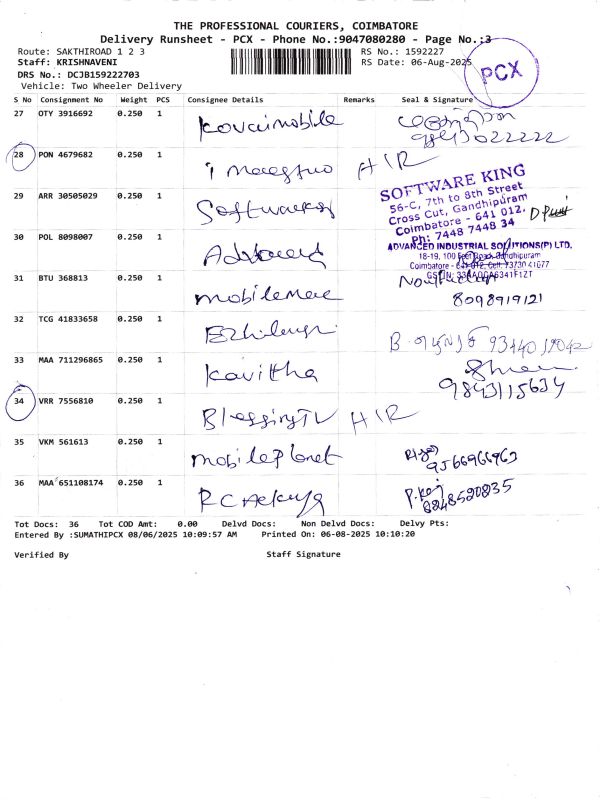 THE PROFESSIONAL COURIERS, COIMBATORE
Delivery Runsheet - PCX - Phone No.:9047080280 - Page No.:3
Route: SAKTHIROAD 1 2 3 RS No.: 1592227
Staff: KRISHNAVENI RS Date: 06-Aug-2025
DRS No.: DCJB159222703
Vehicle: Two Wheeler Delivery
PCX
S No Consignment No Weight PCS Consignee Details Remarks Seal & Signature
27 OTY 3916692 0.250 1 Kovaimobile
28 PON 4679682 0.250 1 HIR
29 ARR 30505029 0.250 1
SOFTWARE KING
56-C, 7th to 8th Street
Cross Cut, Gandhipuram
Coimbatore - 641 012.
Ph: 7448 7448 34
30 POL 8098007 0.250 1
ADVANCED INDUSTRIAL SOLUTIONS(P) LTD.
18-19, 100 Feet Road, Gandhipuram
31 BTU 368813 0.250 1 8098919121
32 TCG 41833658 0.250 1
33 MAA 711296865 0.250 1 Kavitha 9843115634
34 VRR 7556810 0.250 1 Blessing TV HIR
35 VKM 561613 0.250 1 mobile Planet 9566966963
36 MAA 651108174 0.250 1 8248520835
Tot Docs: 36 Tot COD Amt: 0.00 Delvd Docs: Non Delvd Docs: Delvy Pts:
Entered By :SUMATHIPCX 08/06/2025 10:09:57 AM Printed On: 06-08-2025 10:10:20
Verified By Staff Signature